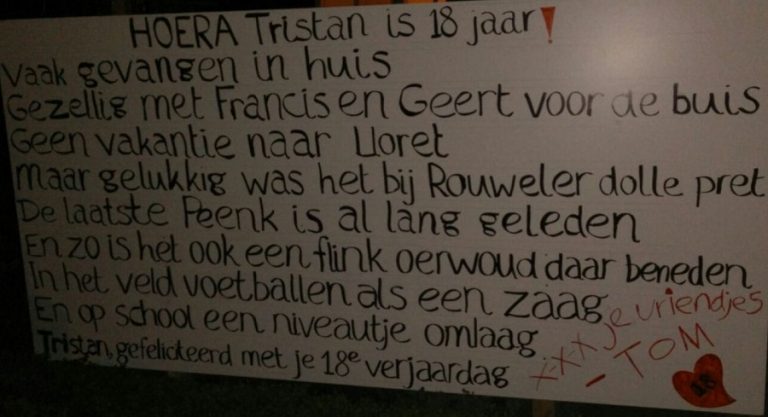 HOERA Tristan is 18 jaar!
Vaak gevangen in huis
Gezellig met Francis en Geert voor de buis
Geen vakantie naar Lloret
Maar gelukkig was het bij Rouweler dolle pret
De laatste Peenk is al lang geleden
En zo is het ook een flink oerwoud daar beneden
In het veld voetballen als een zaag
En op school een niveautje omlaag
Tristan, gefeliciteerd met je 18e verjaardag
xxx je vriendjes
- TOM
18